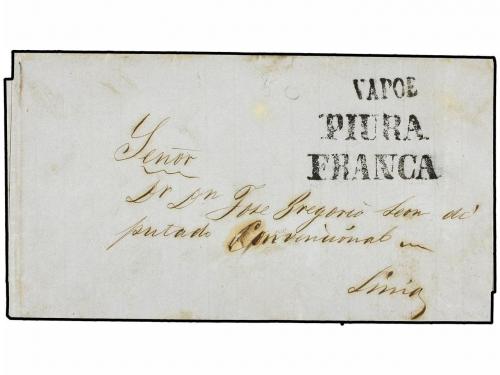 VAPOR
PIURA
FRANCA
Señor
Dr Dn Jose Gregorio Leon di
putado Convencional
Lima